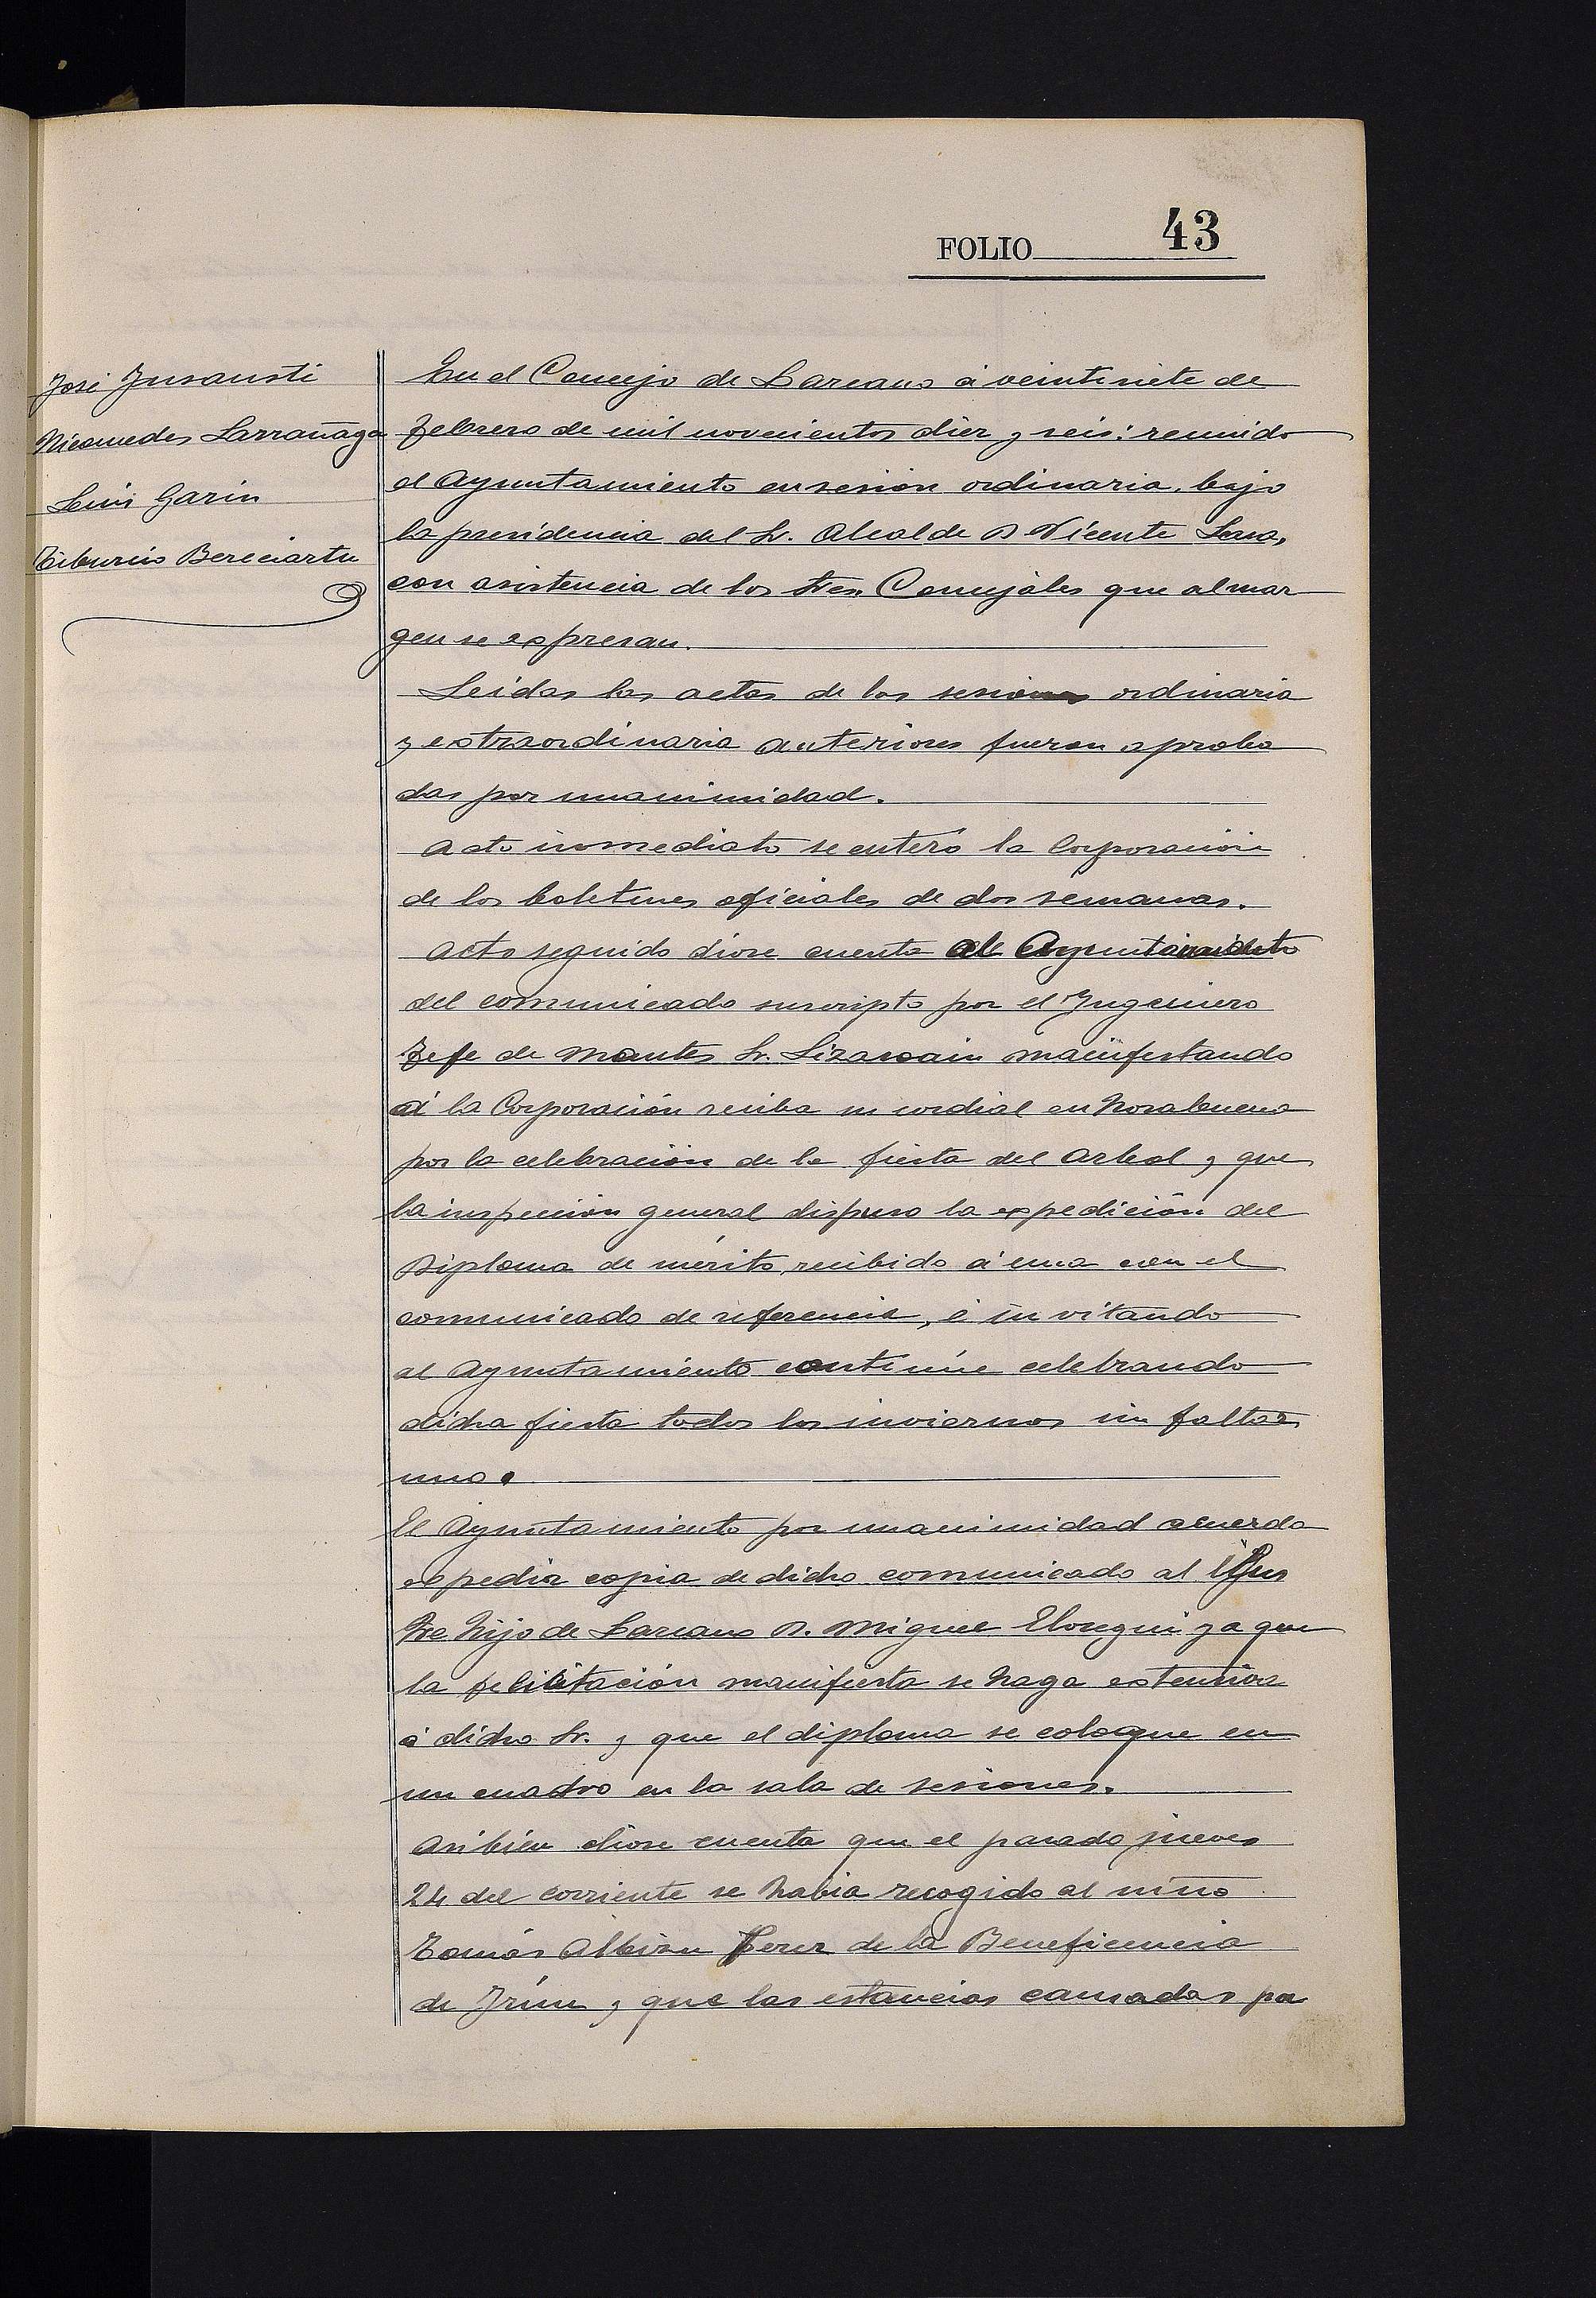 FOLIO 43
José Insausti
Nicomedes Larrañaga
Luis Garin
Tiburcio Bereciartu
En el Concejo de Lazcano á veintisiete de
Febrero de mil novecientos diez y seis: reunido
el Ayuntamiento en sesión ordinaria, bajo
la presidencia del Sr. Alcalde D Vicente
con asistencia de los Sres. Concejales que al mar
gen se expresan.
Leidas las actas de las sesiones ordinaria
y extraordinaria anteriores fueron aproba
das por unanimidad.
Acto inmediato se enteró la Corporación
de los boletines oficiales de dos semanas.
Acto seguido diose cuenta al Ayuntamiento
del comunicado suscripto por el Ingeniero
Jefe de Montes Sr. Lizasoain manifestando
á la Corporación reciba su cordial en horabuena
por la celebración de la fiesta del Arbol y que
la inspección general dispuso la expedición del
Diploma de mérito, recibido á una con el
comunicado de referencia, é in vitando
al Ayuntamiento continúe celebrando
dicha fiesta todos los inviernos sin faltar
uno.
El Ayuntamiento por unanimidad acuerda
expedir copia de dicho comunicado al Ilus
tre hijo de Lazcano D. Miguel Elosegui ya que
la felicitación manifiesta se haga extensiva
á dicho Sr. y que el diploma se coloque en
un cuadro en la sala de sesiones.
Asi bien diose cuenta que el pasado jueves
24 del corriente se habia recogido al niño
Tomás Albizu Perez de la Beneficencia
de Irún y que las estancias causadas por